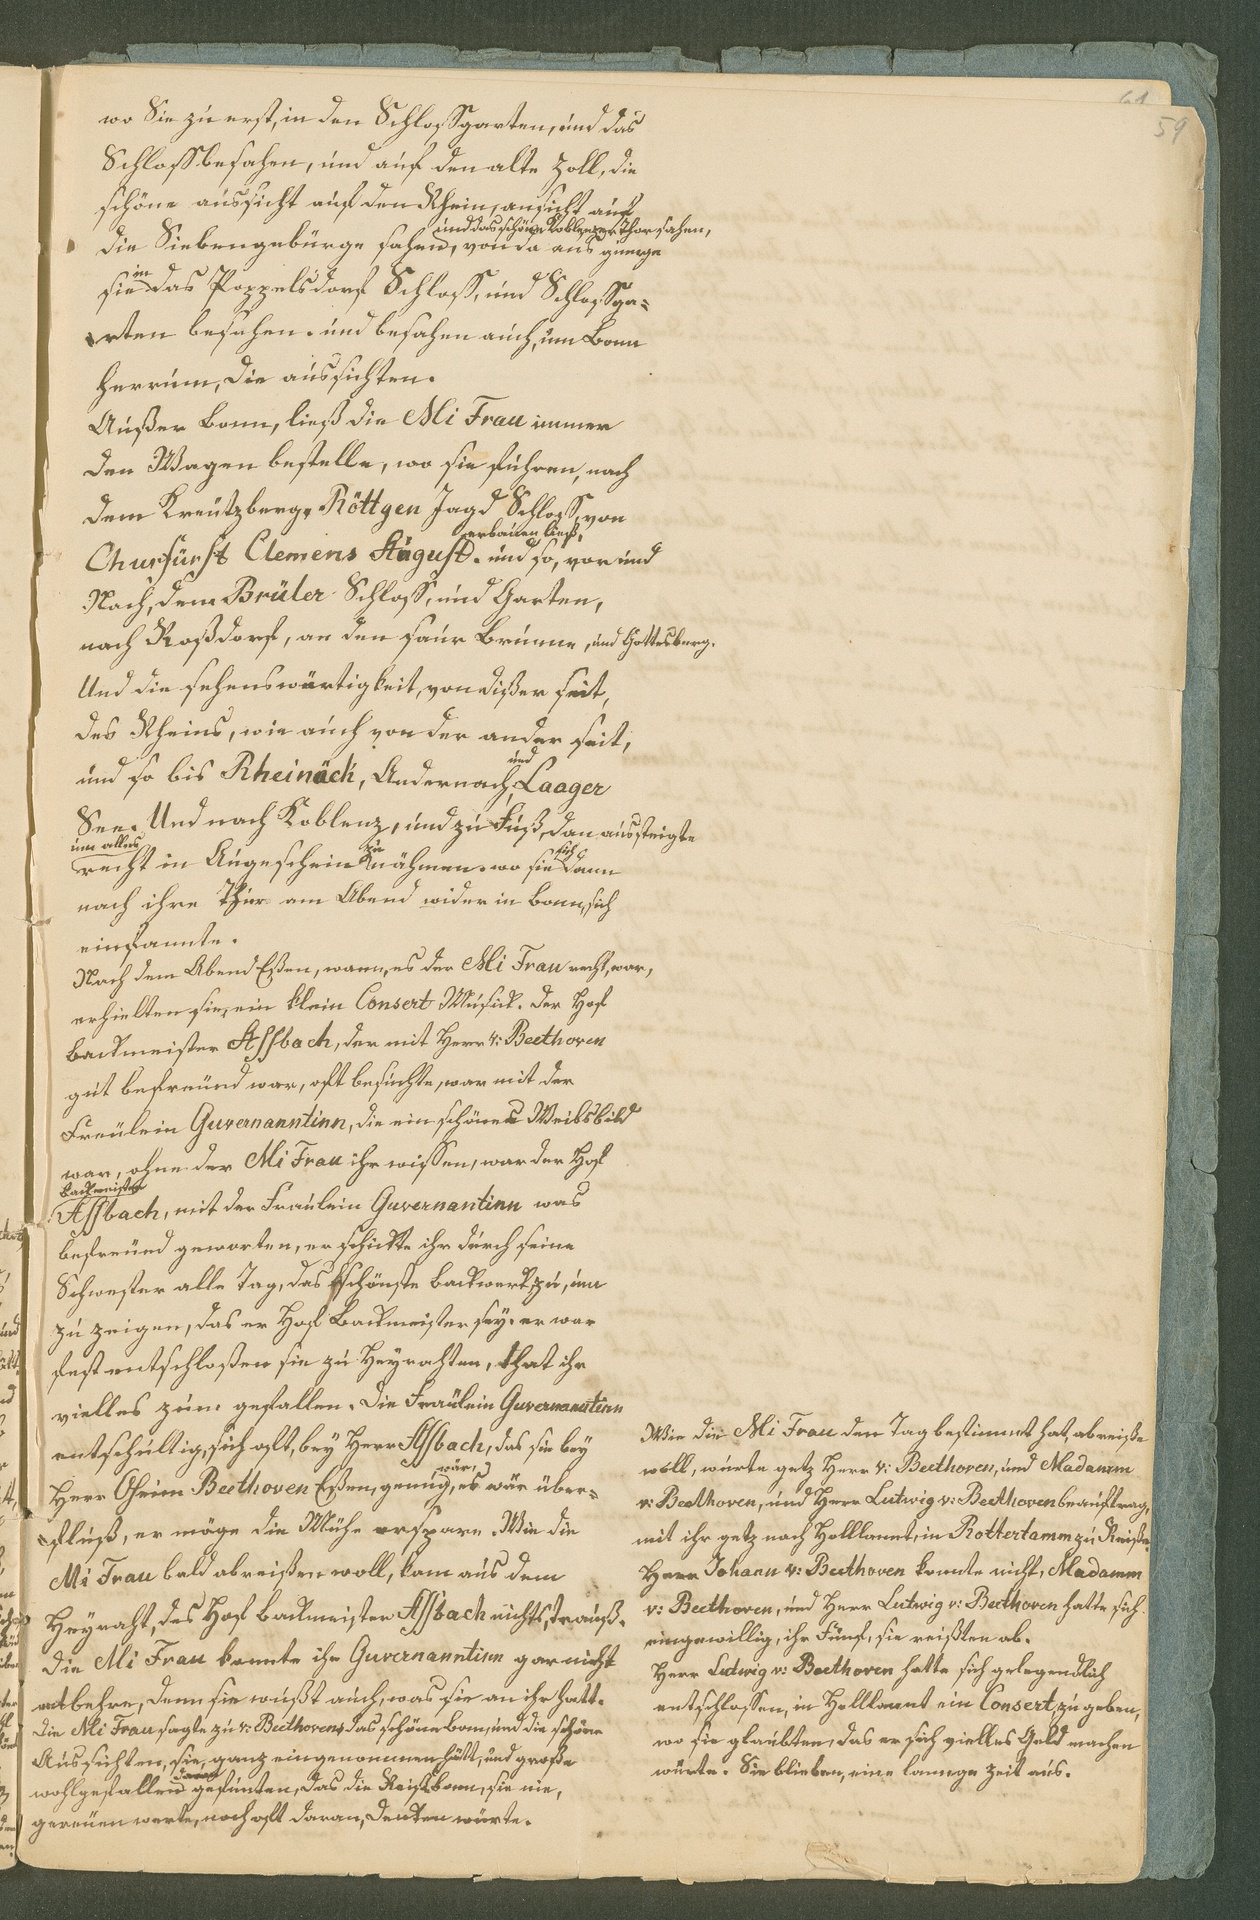 59
wo Sie zu erst, in den Schlossgarten, und das
Schloss besahen, und auf den alte Zoll, die
schöne aussicht auf den Rhein, ansicht auf
und das schöne Koblenzer Thor sahen,
die Siebengebürge sahen, von da aus gienge
sie in das Poppelsdorf Schloss, und Schlossga-
rten besahen. und besahen auch, um Bonn
herrum, die aussichten.
Außer Bonn, ließ die Mi Frau immer
den Wagen bestelle, wo sie fuhren, nach
dem Kreutzberg, Röttgen Jagd Schloss, von
erbauen ließ,
Churfürst Clemens August. und so, vor und
Nach, dem Brüler Schloss, und Garten,
nach Roßdorf, an den saur Brunne, und Gottesberg.
Und die sehenswürtigkeit, von dißer seit,
des Rheins, wie auch von der ander seit,
und so bis Rheinäck, Andernach, und Laager
See. Und nach Koblenz, und zu Fuß, dan aussteigte
um alles
recht in Augeschein zu nähmen. wo sie sich dann
nach ihre Thur am Abend wider in Bonn, sich
einfannte.
Nach dem Abend Eßen, wann, es der Mi Frau recht, war,
erhielten sie, ein klein Consert Musick. Der Hof
backmeister Assbach, der mit Herr v: Beethoven
gut befreund war, oft besuchte, war mit der
Freülein Guvernanntinn, die ein schönes Weibsbild
war, ohne der Mi Frau ihr wissen, war der Hof
backmeister
Assbach, mit der Fraülein Guvernantinn was
befreund geworten, er schickte ihr durch seine
Schwester alle Tag, das schönste backwerk, zu, um
zu zeigen, das er Hof Backmeister sey. er war
fest entschloßen sie zu Heyrahten, that ihr
vielles zum gefallen. Die Fraülein Guvernanntinn
entschultig, sich oft, bey Herr Assbach, das sie bey
Herr Oheim Beethoven Eßen, genug, wär, es wär über-
fluß, er möge die Mühe erspare. Wie die
Mi Frau bald abreißen woll, kam aus dem
Heyraht, des Hof backmeister Assbach nichts, trauß.
Die Mi Frau konnte ihr Guvernanntinn gar nicht
entbehre, denn sie wußt auch, was sie an ihr hatt.
Die Mi Frau sagte zu v: Beethovens, das schöne bonn, und die schöne
Aussichten, sie, ganz eingenommen hätt, und große
wohlgefallen daran gefunten, das die Reiß bonn, sie nie,
gereuen werte, noch oft daran, denken würte.
Wie die Mi Frau den Tag bestimmt hat, abreiße
woll, wurte getz Herr v: Beethoven, und Madamm
v: Beethoven, und Herr Lutwig v: Beethoven beauftrag,
mit ihr getz nach Hollannt, in Rottertamm zu Reiße.
Herr Johann v: Beethoven konnte nicht, Madamm
v: Beethoven, und Herr Lutwig v: Beethoven hatte sich
eingewillig, ihr Fünf, sie reißten ab.
Herr Lutwig v: Beethoven hatte sich gelegendlich
entschlossen, in Hollannt ein Consert, zu geben,
wo sie glaubten, das er sich vielles Geld machen
würte. Sie blieben, eine lannge Zeit aus.